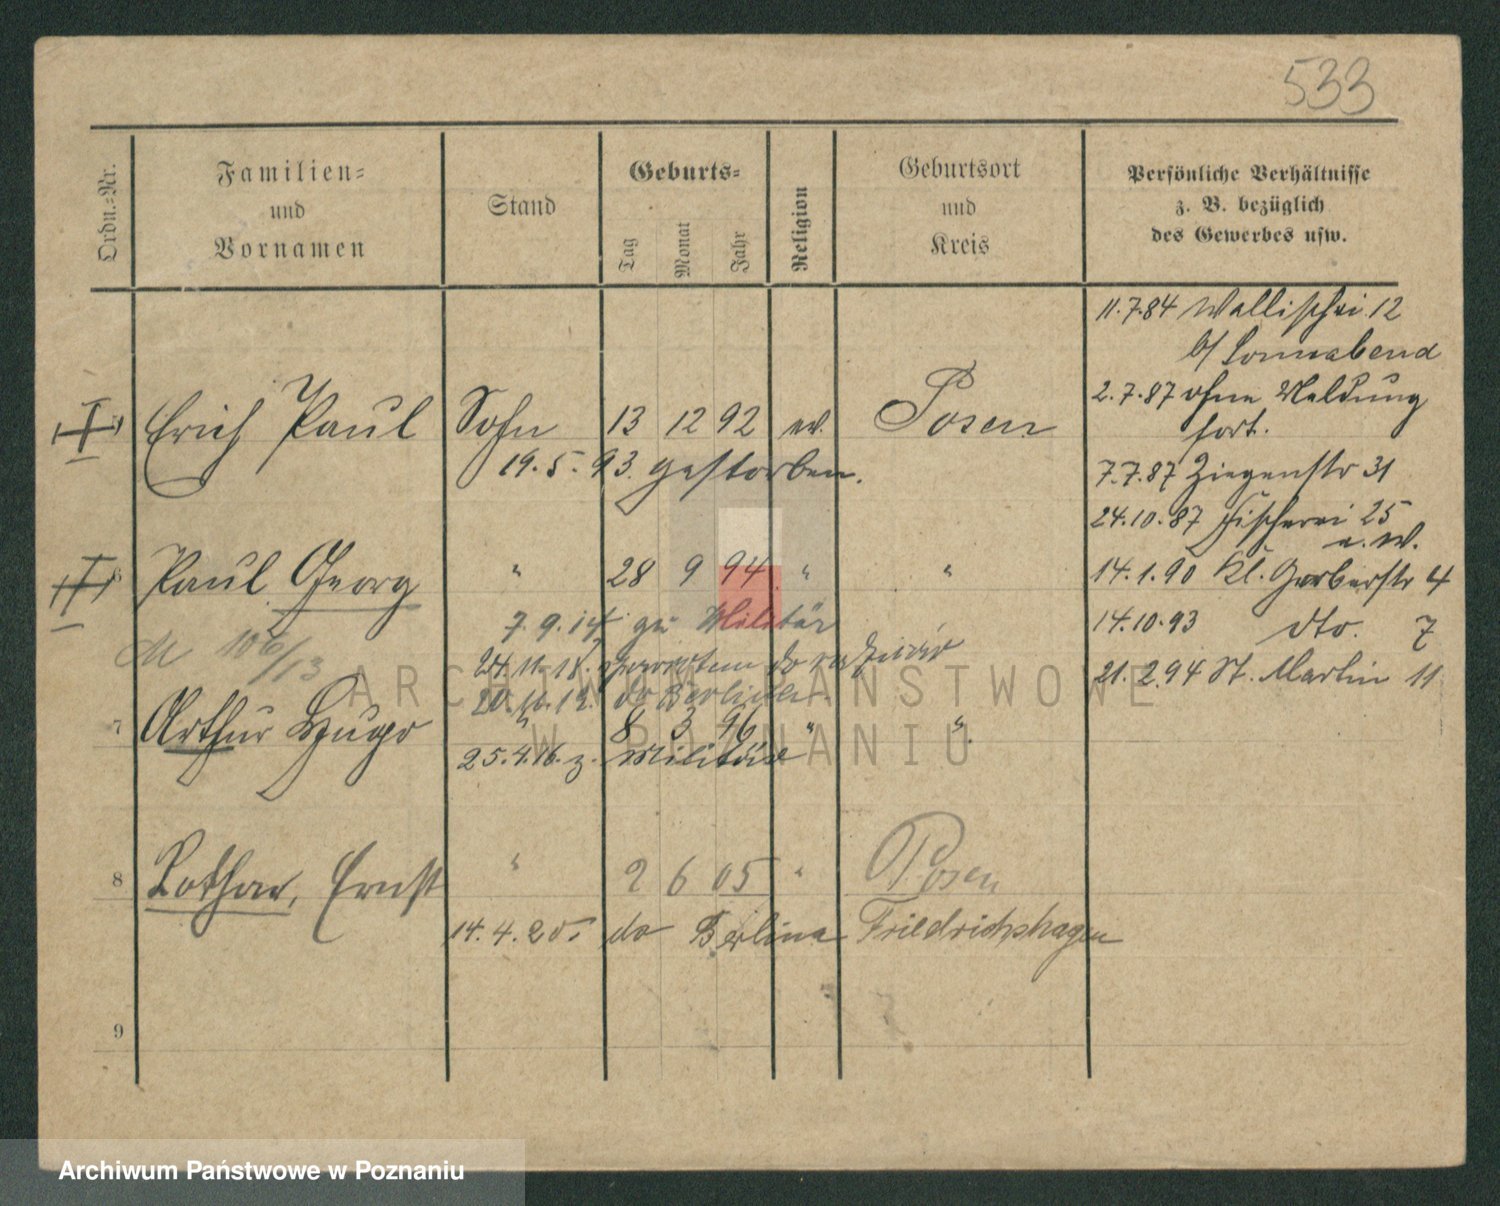 533
Ordn.-Nr.
Familien-
und
Vornamen
Stand
Geburts-
Tag
Monat
Jahr
Religion
Geburtsort
und
Kreis
Persönliche Verhältnisse
z. B. bezüglich
des Gewerbes usw.
11.7.84 Wallischei 12
b/ Sonnabend
2.7.87 ohne Meldung
fort.
7.7.87 Ziegenstr 31
24.10.87 Fischerei 25
a. W.
14.1.90 Kl. Gerberstr 4
14.10.93 dto. 7
21.2.94 St. Martin 11
Erich Paul Sohn 13 12 92 ev. Posen
19.5.93. gestorben.
6 Paul Georg " 28 9 94 " "
7.9.14 zu Militär
M 106/13
24.11.18. do
20.11.12. do Berlina
7 Arthur Hugo " 8 3 96 " "
25.4.16. z. Militär
8 Lothar, Ernst " 2 6 05 " Posen
14.4.20. do Berlina Friedrichshagen
9
ARCHIWUM PAŃSTWOWE
W POZNANIU
Archiwum Państwowe w Poznaniu